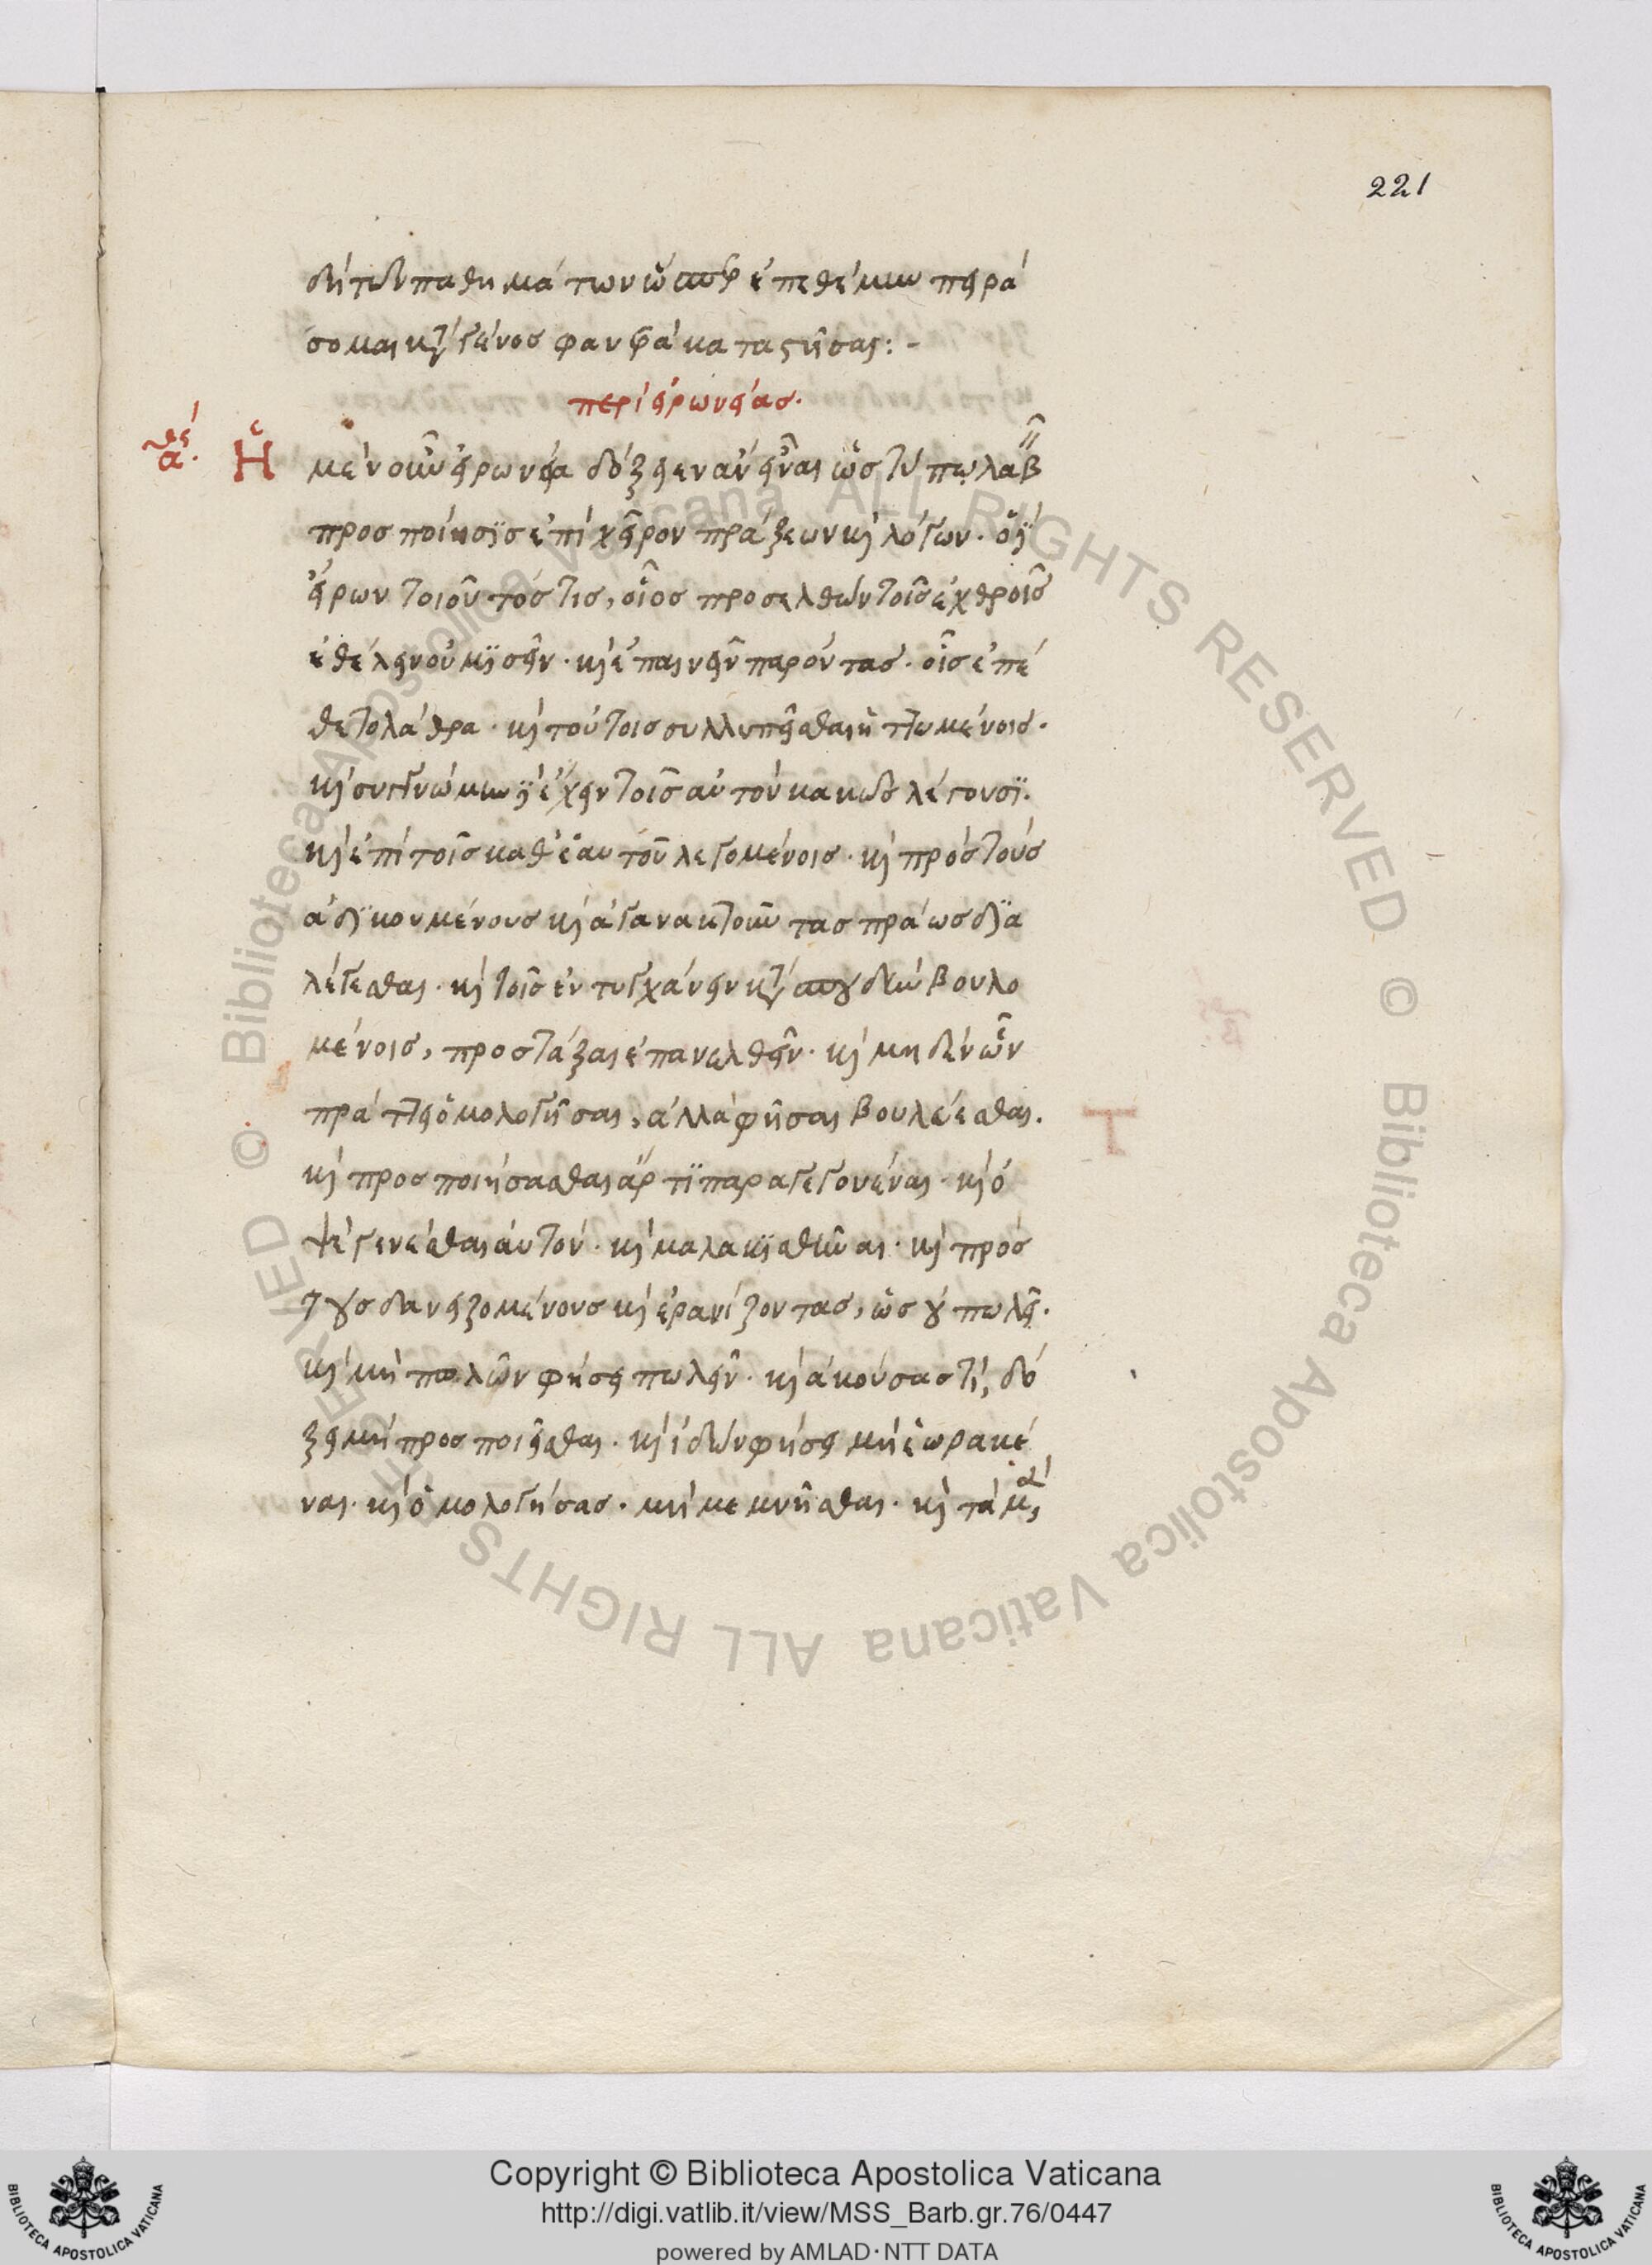 221
δὴ τῶν παθημάτων ὧνπερ ἐπεθέμην πειρά
σομαι κατὰ γένος φανερὰ καταστῆσαι:-
περὶ εἰρωνείας.
α. Ἡ μὲν οὖν εἰρωνεία δόξειεν ἂν εἶναι ὡς τύπῳ λαβεῖν
προσποίησϊς ἐπὶ χεῖρον πράξεων καὶ λόγων. ὁ δὲ
εἴρων τοιοῦτός τις, οἷος προσελθὼν τοῖς ἐχθροῖς
ἐθέλειν οὐ μϊσεῖν. καὶ ἐπαινεῖν παρόντας. οἷς ἐπέ
θετο λάθρα. καὶ τούτοις συλλυπεῖσθαι ἡττωμένοις.
καὶ συγγνώμην δὲ ἔχειν τοῖς αὐτὸν κακῶς λέγουσϊ.
καὶ ἐπὶ τοῖς καθ' ἑαυτοῦ λεγομένοις. καὶ πρὸς τοὺς
ἀδϊκουμένους καὶ ἀγανακτοῦντας πράως δϊα
λέγεσθαι. καὶ τοῖς ἐντυγχάνειν κατὰ σπουδὴν βουλο
μένοις, προστάξαι ἐπανελθεῖν. καὶ μηδὲν ὧν
πράττει ὁμολογῆσαι, ἀλλὰ φῆσαι βουλεύεσθαι.
καὶ προσποιήσασθαι ἄρτϊ παραγεγονέναι. καὶ ὀ
ψὲ γενέσθαι αὐτόν. καὶ μαλακϊσθῆναι. καὶ πρὸς
τοὺς δανειζομένους καὶ ἐρανίζοντας, ὡς οὐ πωλεῖ.
καὶ μὴ πωλῶν φήσει πωλεῖν. καὶ ἀκούσας τί, δό
ξει μὴ προσποιεῖσθαι. καὶ ἰδὼν φήσει μὴ ἑωρακέ
ναι. καὶ ὁμολογήσας. μὴ μεμνῆσθαι. καὶ τὰ μὲν
Copyright © Biblioteca Apostolica Vaticana
http://digi.vatlib.it/view/MSS_Barb.gr.76/0447
powered by AMLAD·NTT DATA
BIBLIOTECA APOSTOLICA VATICANA
BIBLIOTECA APOSTOLICA VATICANA
© Biblioteca Apostolica Vaticana ALL RIGHTS RESERVED © Biblioteca Apostolica Vaticana ALL RIGHTS RESERVED